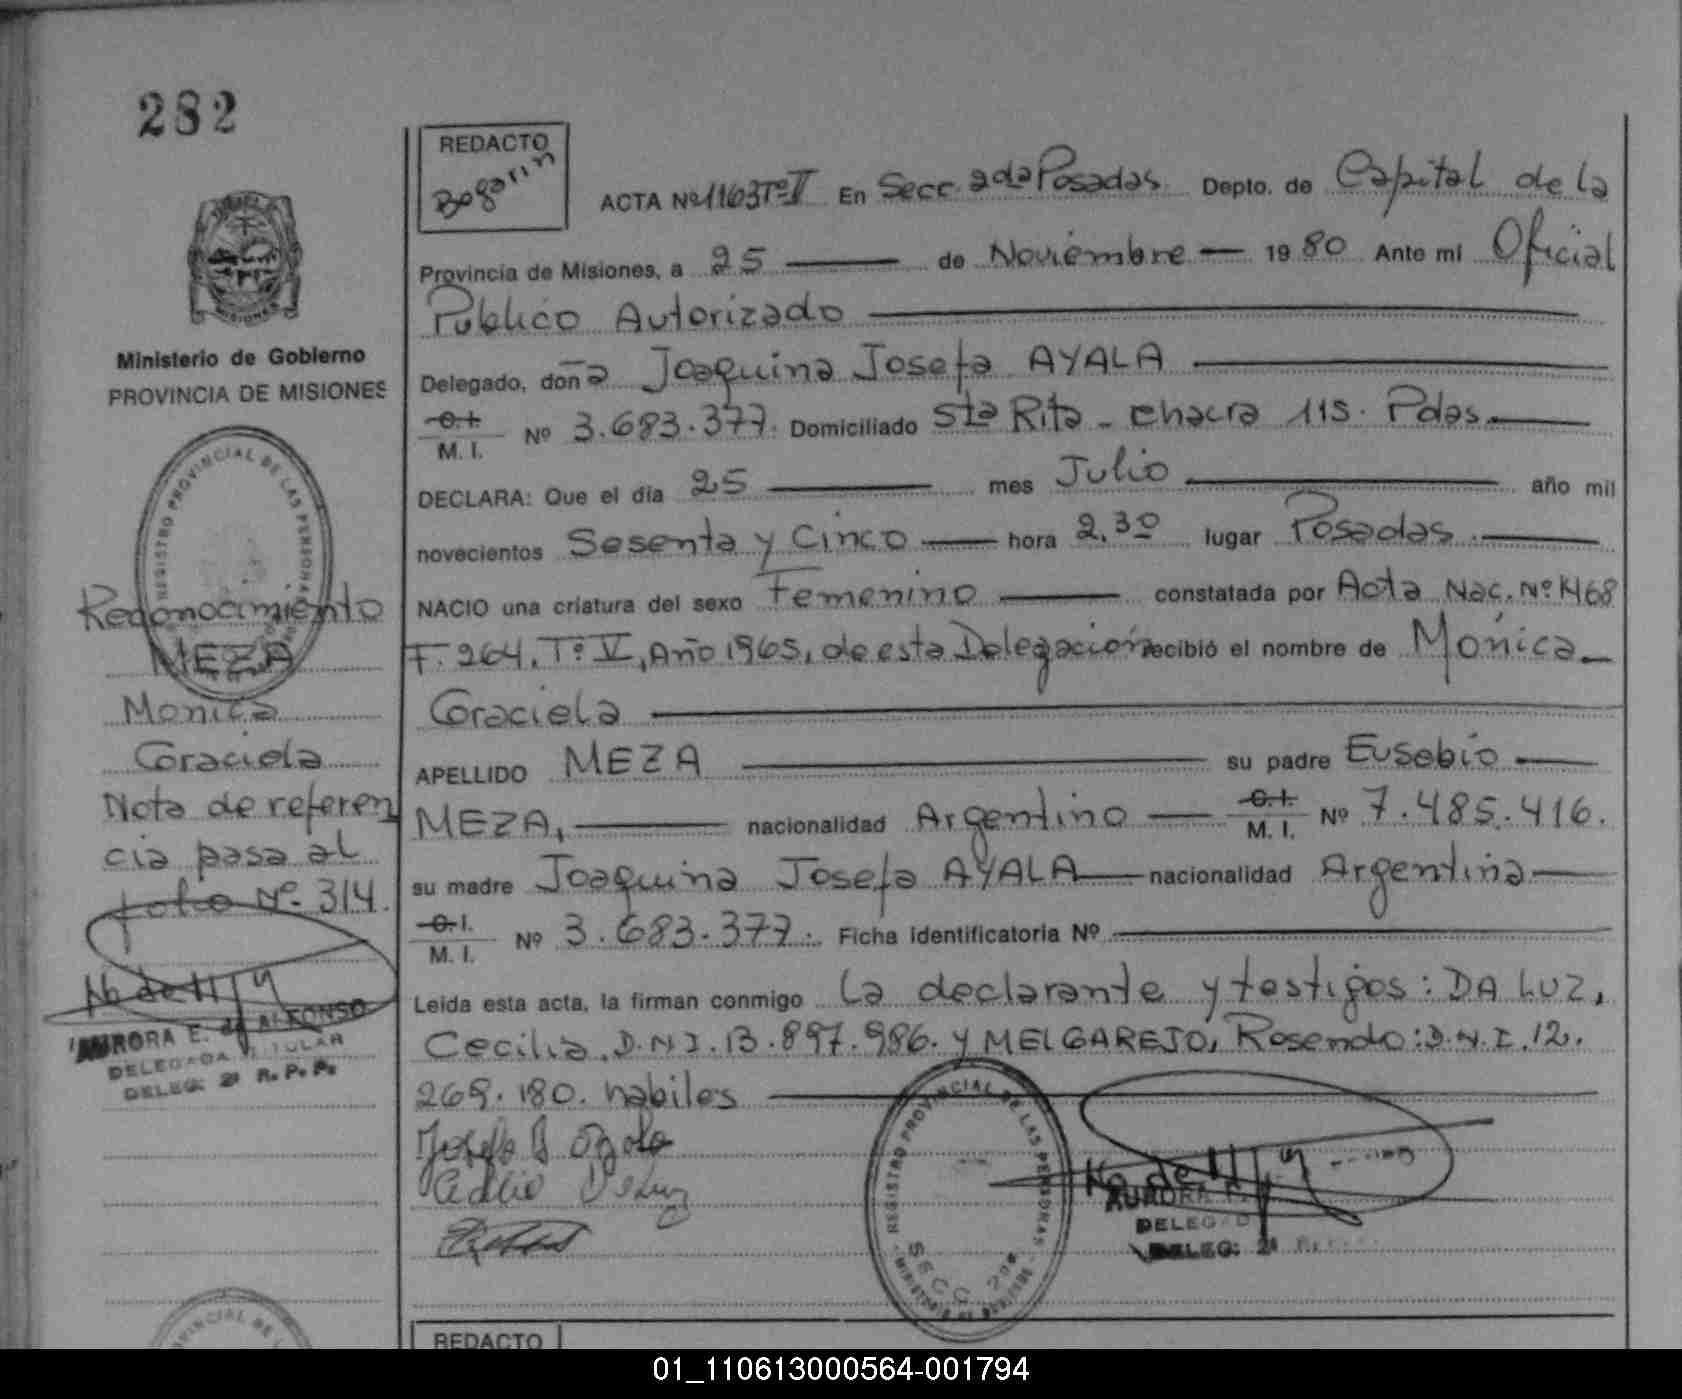 282
REDACTO
Bogarin
ACTA Nº 1163 Tº II En Secc. 2da Posadas Depto. de Capital de la
Provincia de Misiones, a 25 de Noviembre 1980 Ante mi Oficial
Publico Autorizado
Delegado, doña Joaquina Josefa AYALA
C.I.
M. I. Nº 3.683.377. Domiciliado Sta Rita - chacra 115. Pdas.
DECLARA: Que el día 25 mes Julio año mil
novecientos Sesenta y Cinco hora 2,30 lugar Posadas
NACIO una criatura del sexo Femenino constatada por Acta Nac. Nº 1468
F. 264, Tº V, Año 1965, de esta Delegación recibió el nombre de Mónica
Graciela
APELLIDO MEZA su padre Eusebio
MEZA, nacionalidad Argentino C.I.
M. I. Nº 7.485.416.
su madre Joaquina Josefa AYALA nacionalidad Argentina
C.I.
M. I. Nº 3.683.377. Ficha Identificatoria Nº
Leída esta acta, la firman conmigo La declarante y testigos: DA LUZ,
Cecilia. D.N.I. 13.897.986. y MELGAREJO, Rosendo: D.N.I. 12.
269.180. habiles
Ministerio de Gobierno
PROVINCIA DE MISIONES
REGISTRO PROVINCIAL DE LAS PERSONAS
Reconocimiento
MEZA
Monica
Graciela
Nota de referen
cia pasa al
folio Nº 314.
AURORA E. de ALFONSO
DELEGADA TITULAR
DELEG: 2ª R. P. P.
REGISTRO PROVINCIAL DE LAS PERSONAS
SECC 2da
AURORA E.
DELEGAD
DELEG: 2ª
REDACTO
01_110613000564-001794